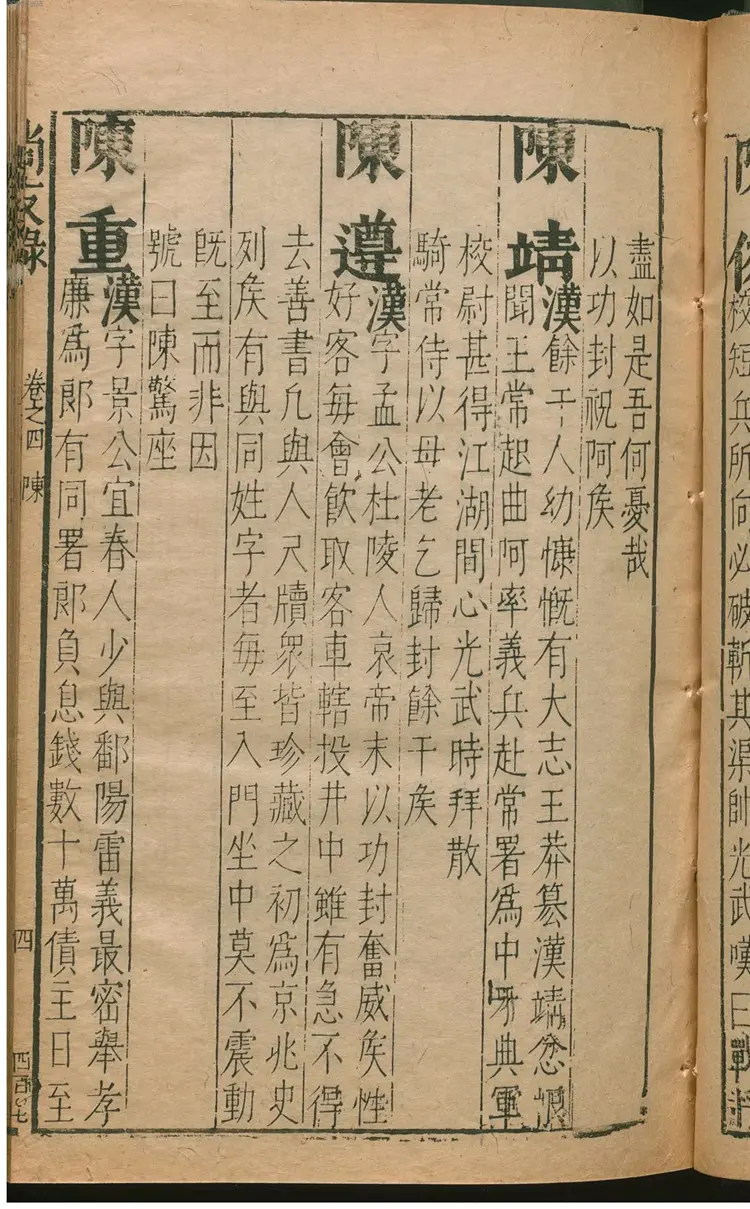 校短兵所向必破斬其渠帥光武嘆曰戰
盡如是吾何憂哉
以功封祝阿矦
陳靖漢餘干人幼慷慨有大志王莽篡漢靖忿恨
聞王常起曲阿率義兵赴常署爲中牙典軍
校尉甚得江湖間心光武時拜散
騎常侍以母老乞歸封餘干矦
陳遵漢字孟公杜陵人哀帝末以功封奮威矦性
好客每會飲取客車轄投井中雖有急不得
去善書凡與人尺牘衆皆珍藏之初爲京兆史
列矦有與同姓字者每至入門坐中莫不震動
旣至而非因
號曰陳驚座
陳重漢字景公宜春人少與鄱陽雷義最密舉孝
廉爲郞有同署郞負息錢數十萬債主日至
尚友錄 卷之四 陳 四